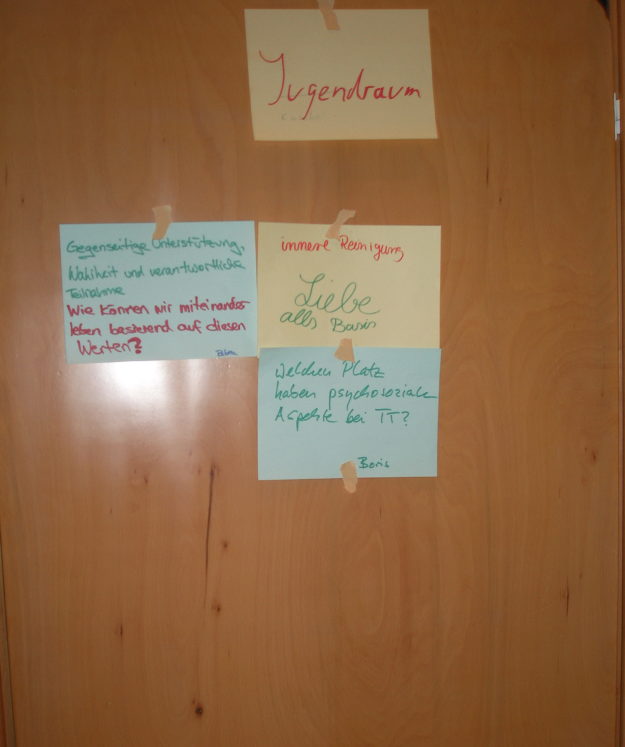 Jugendraum
Gegenseitige Unterstützung,
Wahrheit und verantwortliche
Teilnahme
Wie können wir miteinander
leben basierend auf diesen
Werten?
innere Reinigung
Liebe
als Basis
welchen Platz
haben psychosoziale
Aspekte bei TT?
Boris